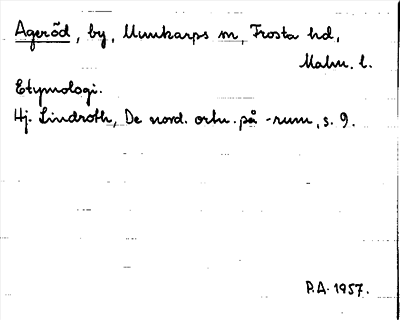 Ageröd, by, Munkarps sn, Frosta hd,
Malm. l.
Etymologi.
Hj. Lindroth, De nord. ortn. på -rum, s. 9.
P.A. 1957.